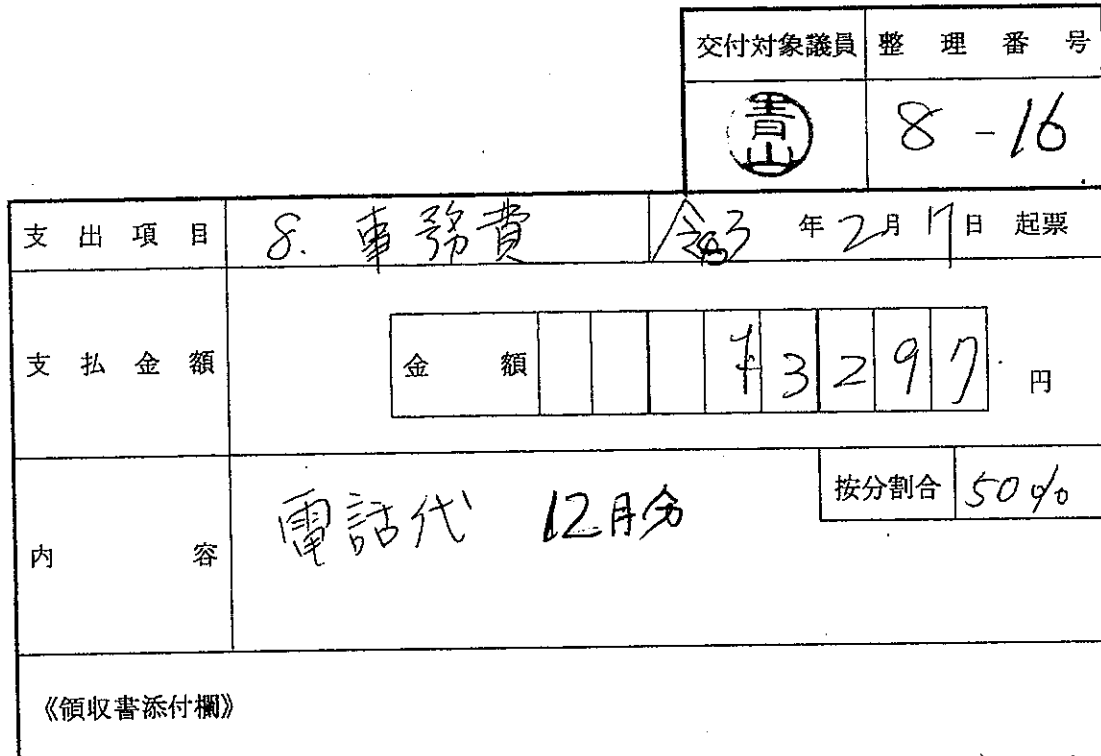 交付対象議員 整理番号
青山 8-16
支出項目 8. 事務費 令和3年2月17日 起票
支払金額 金額 ¥3297円
内容 電話代 12月分 按分割合 50%
《領収書添付欄》